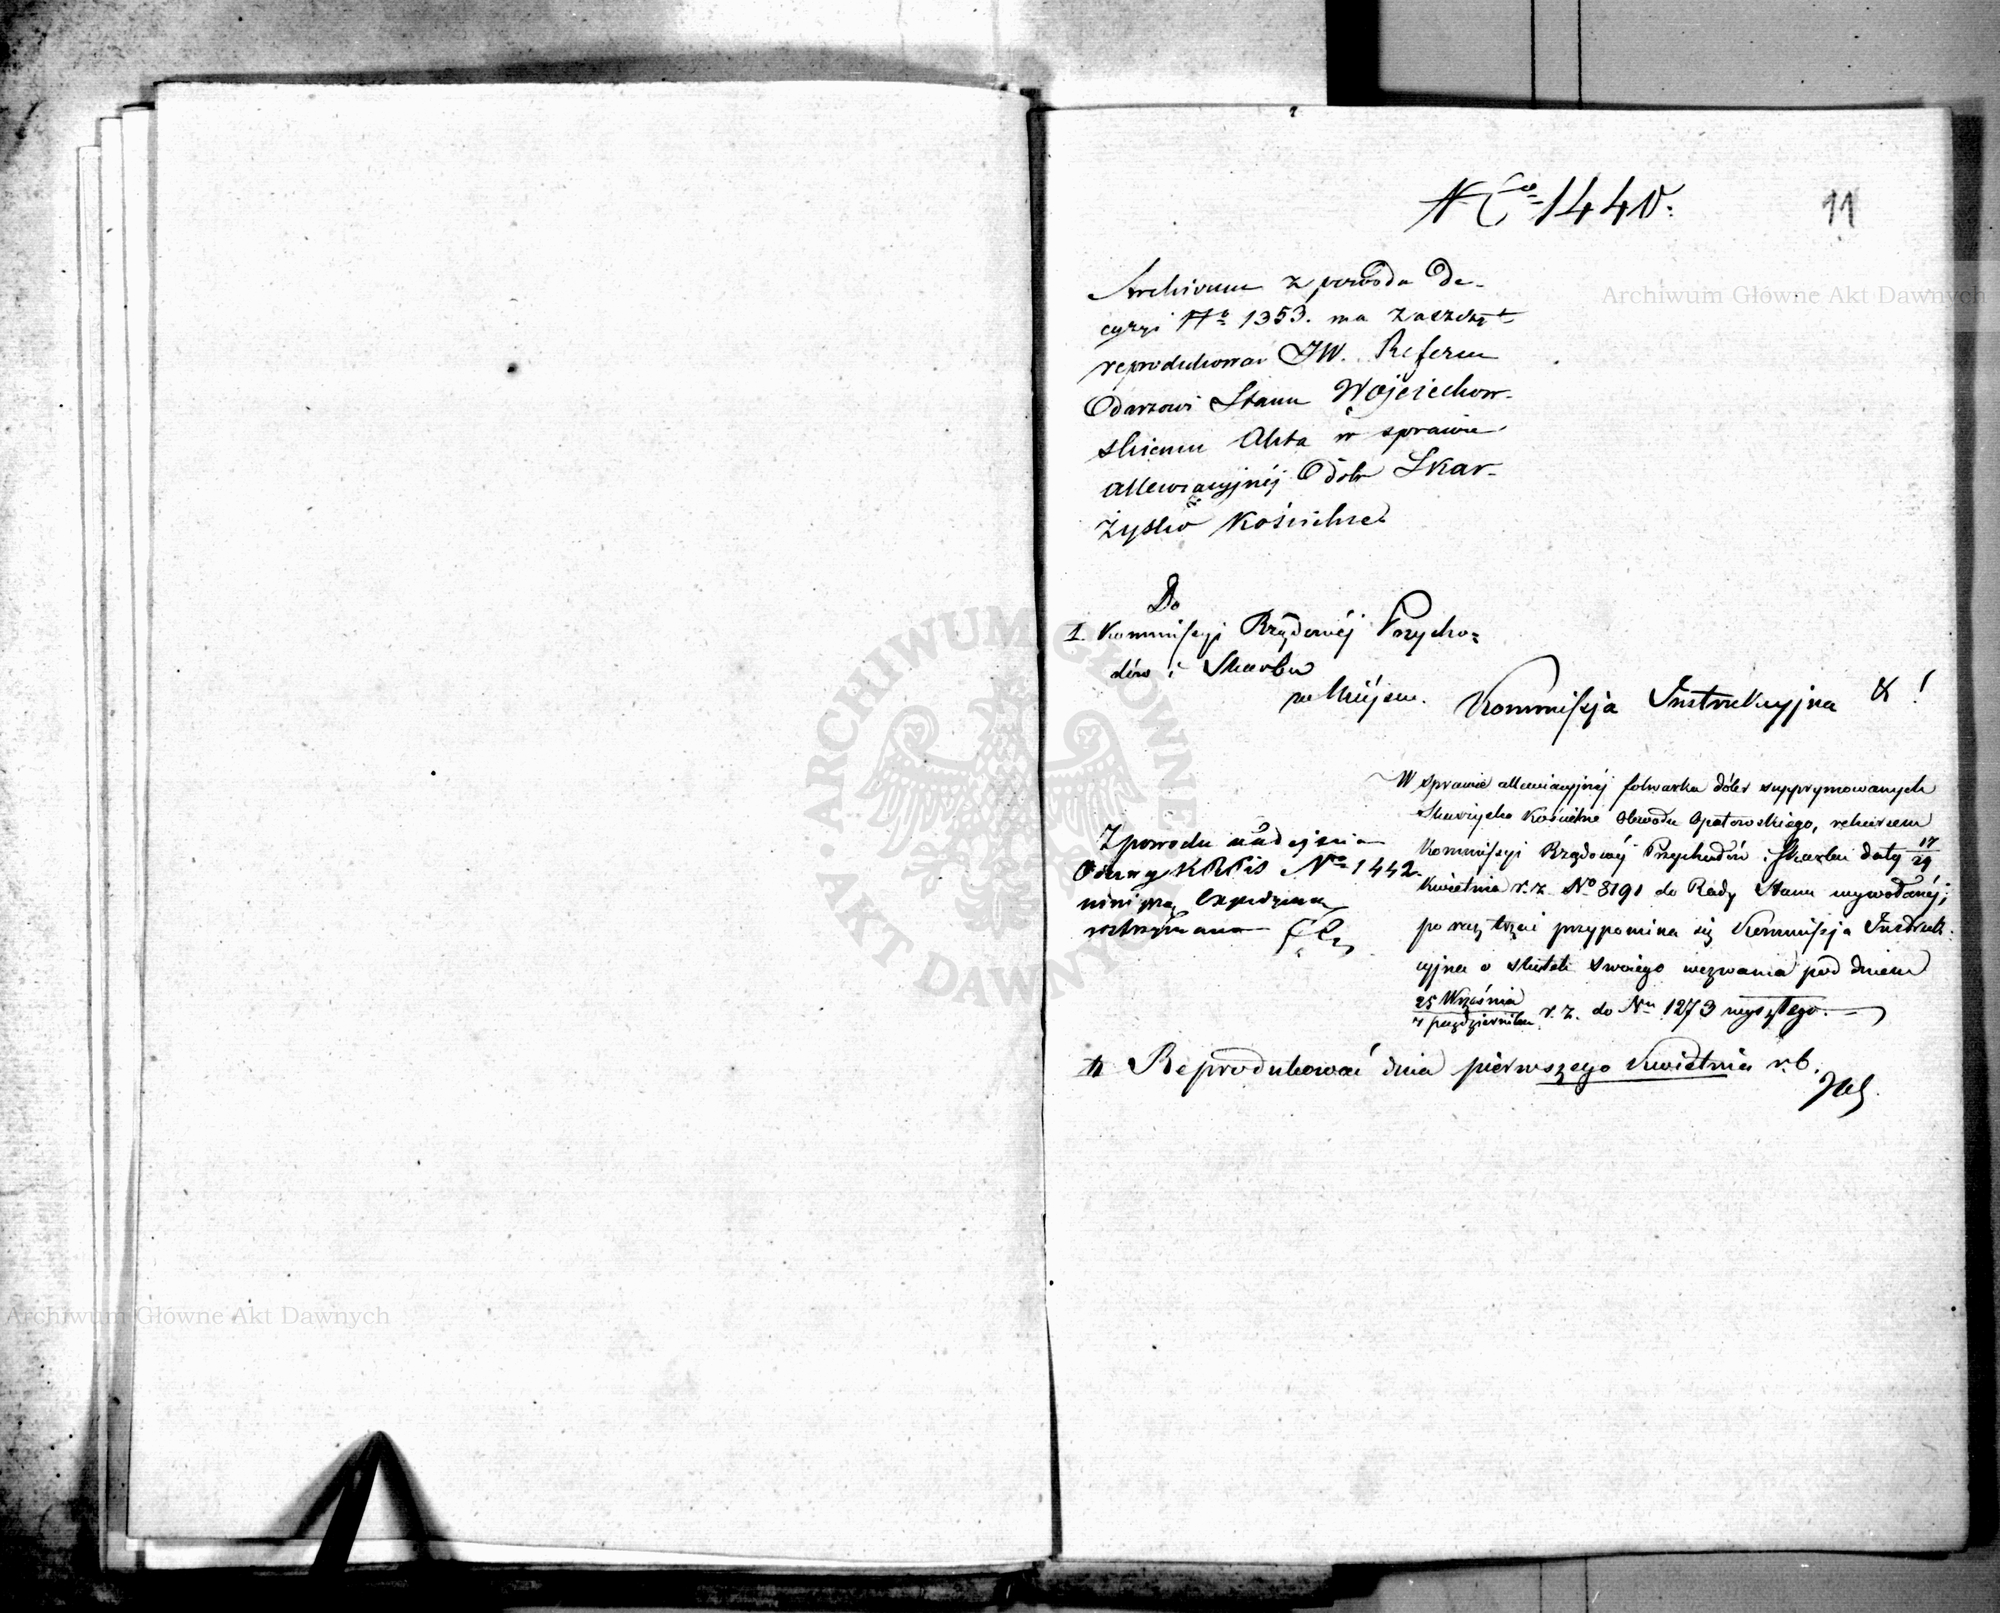 Nro 1440.
11
Archivum z powodu De-
cyzyi No 1353. ma zaszczyt
reprodukować JW. Referen
Odarzowi Stanu Wojciechow-
skiemu Akta w sprawie
allewiacyjnéj Dóbr Skar-
żysko Kościelne
Do
1. Kommissyi Rządowéj Przycho-
dów i Skarbu
w Miejscu.
Kommissja Instrukcyjna & !
W sprawie allewiacyjnéj folwarku dóbr suppry­mowanych
Skarżysko Kościelne Obwodu Opatowskiego, rekursem
Kommissyi Rządowéj Przychodów i Skarbu daty 17/29
Kwietnia r. z. No 8191 do Rady Stanu wywołanéj;
po raz trzeci przypomina się Kommissja Instruk-
cyjna o skutek swoiego wezwania pod dniem
25 Września / 7 października r. z. do Nru 1273 wyszłego.
Z powodu nadejścia
Odezwy KRPiS Nro 1442.
niniejsza Expedycya
wstrzymana
Reprodukować dnia pierwszego Kwietnia r. b.
Archiwum Główne Akt Dawnych
ARCHIWUM GŁÓWNE · AKT DAWNYCH
Archiwum Główne Akt Dawnych